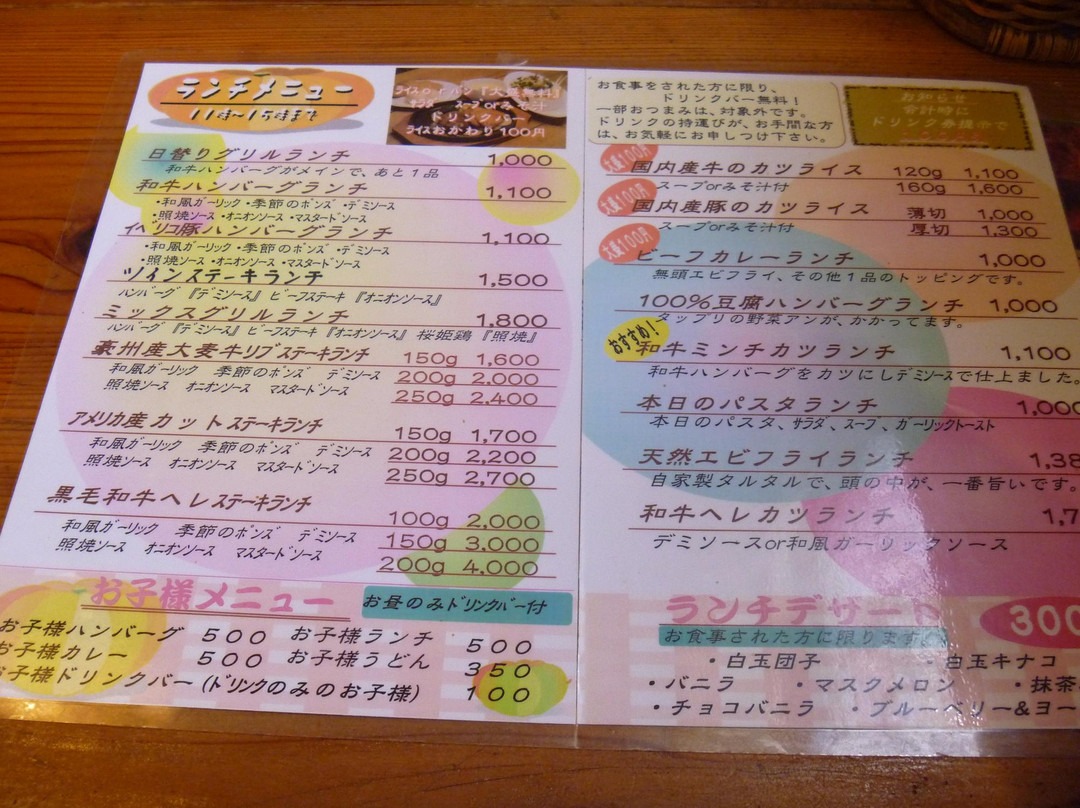 ランチメニュー
11時～15時まで
ライスorパン『大盛無料』
サラダ スープorみそ汁
ドリンクバー
ライスおかわり100円
日替りグリルランチ 1,000
和牛ハンバーグがメインで、あと1品
和牛ハンバーグランチ 1,100
・和風ガーリック・季節のポンズ・デミソース
・照焼ソース・オニオンソース・マスタードソース
イベリコ豚ハンバーグランチ 1,100
・和風ガーリック・季節のポンズ・デミソース
・照焼ソース・オニオンソース・マスタードソース
ツインステーキランチ 1,500
ハンバーグ『デミソース』ビーフステーキ『オニオンソース』
ミックスグリルランチ 1,800
ハンバーグ『デミソース』ビーフステーキ『オニオンソース』桜姫鶏『照焼』
豪州産大麦牛リブステーキランチ 150g 1,600
和風ガーリック 季節のポンズ デミソース 200g 2,000
照焼ソース オニオンソース マスタードソース 250g 2,400
アメリカ産カットステーキランチ 150g 1,700
和風ガーリック 季節のポンズ デミソース 200g 2,200
照焼ソース オニオンソース マスタードソース 250g 2,700
黒毛和牛ヘレステーキランチ 100g 2,000
和風ガーリック 季節のポンズ デミソース 150g 3,000
照焼ソース オニオンソース マスタードソース 200g 4,000
お子様メニュー お昼のみドリンクバー付
お子様ハンバーグ 500 お子様ランチ 500
お子様カレー 500 お子様うどん 350
お子様ドリンクバー(ドリンクのみのお子様) 100
お食事をされた方に限り、
ドリンクバー無料！
一部おつまみは、対象外です。
ドリンクの持運びが、お手間な方
は、お気軽にお申しつけ下さい。
お知らせ
会計時に
ドリンク券提示で
大盛100円
国内産牛のカツライス 120g 1,100
スープorみそ汁付 160g 1,600
大盛100円
国内産豚のカツライス 薄切 1,000
スープorみそ汁付 厚切 1,300
大盛100円
ビーフカレーランチ 1,000
無頭エビフライ、その他1品のトッピングです。
100%豆腐ハンバーグランチ 1,000
タップリの野菜アンが、かかってます。
おすすめ！
和牛ミンチカツランチ 1,100
和牛ハンバーグをカツにしデミソースで仕上ました。
本日のパスタランチ 1,000
本日のパスタ、サラダ、スープ、ガーリックトースト
天然エビフライランチ 1,38
自家製タルタルで、頭の中が、一番旨いです。
和牛ヘレカツランチ 1,7
デミソースor和風ガーリックソース
ランチデザート 300
お食事された方に限ります。
・白玉団子 ・白玉キナコ
・バニラ ・マスクメロン ・抹茶
・チョコバニラ ・ブルーベリー&ヨー